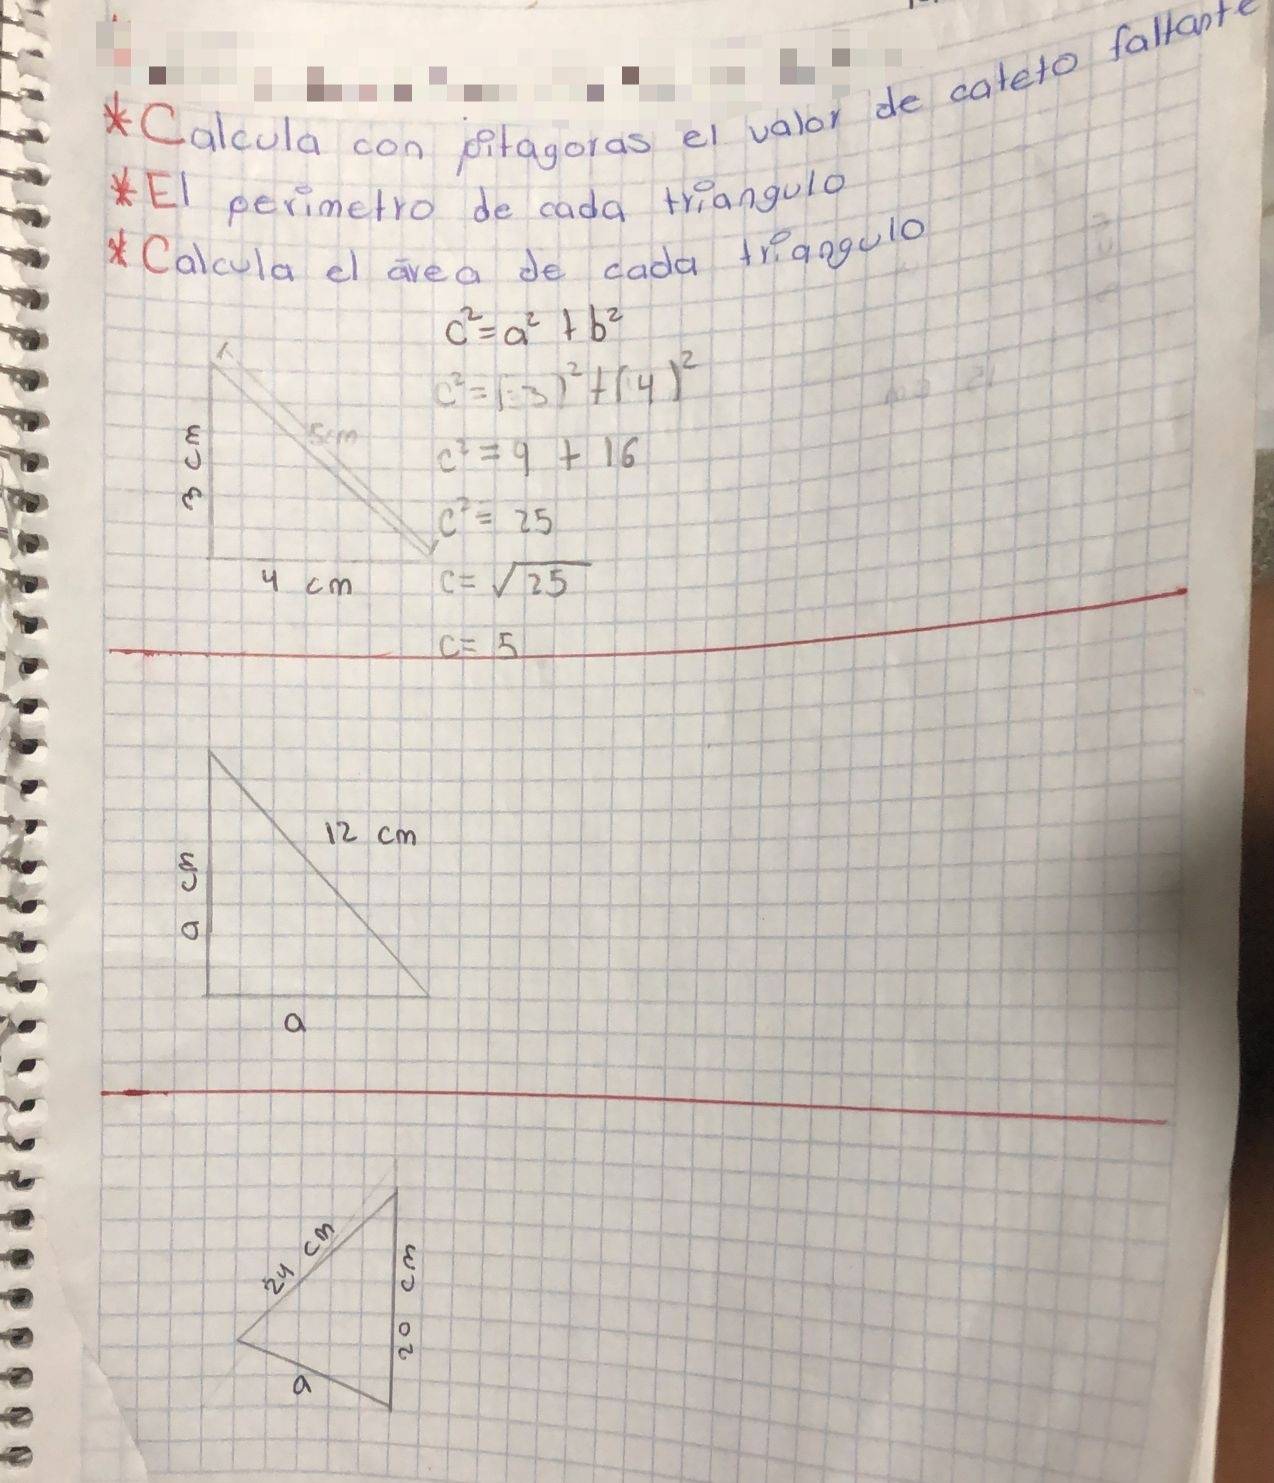 *Calcula con pitagoras el valor de cateto faltante
*El perimetro de cada triangulo
*Calcula el área de cada triangulo
c²=a² + b²
c²=(3)²+(4)²
5cm
3 cm
c²=9 + 16
c²= 25
4 cm
c= √25
c= 5
12 cm
a cm
a
24 cm
20 cm
a